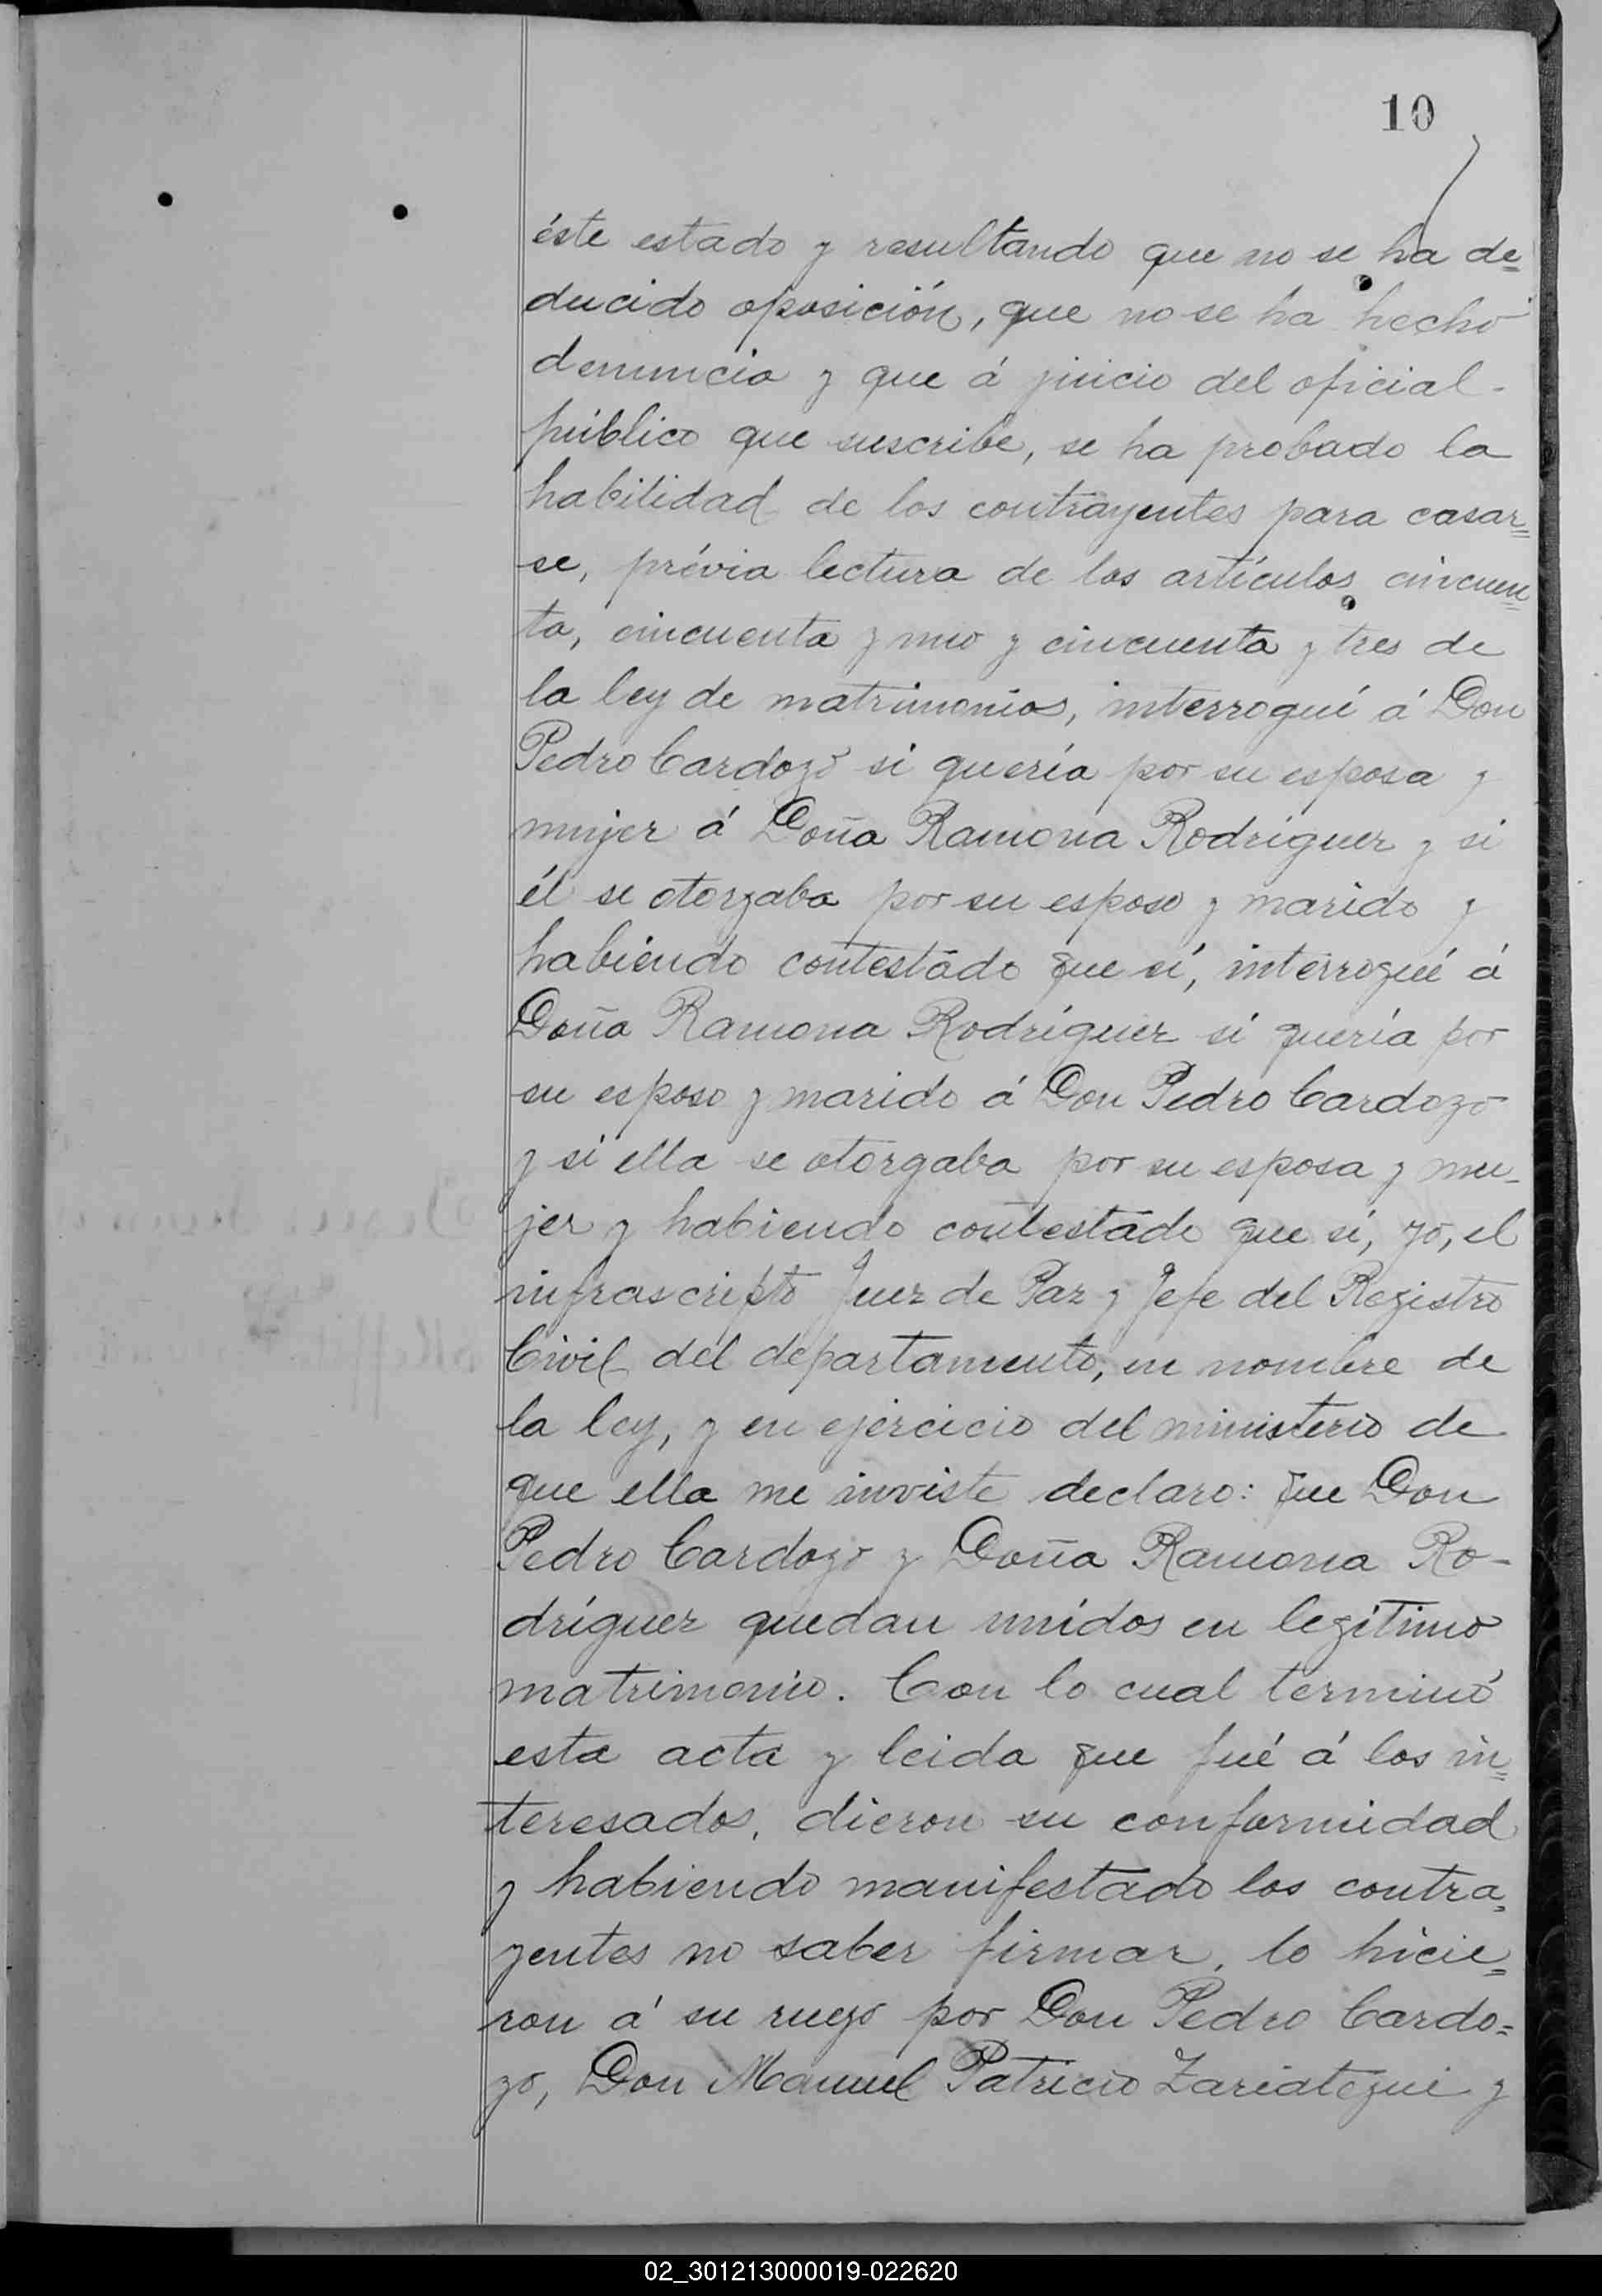 10
éste estado y resultando que no se ha de=
ducido oposición, que no se ha hecho
denuncia y que á juicio del oficial-
público que suscribe, se ha probado la
habilidad de los contrayentes para casar=
se, prévia lectura de los artículos cincuen=
ta, cincuenta y uno y cincuenta y tres de
la ley de matrimonios, interrogué á Don
Pedro Cardozo si quería por su esposa y
mujer á Doña Ramona Rodríguez y si
él se otorgaba por su esposo y marido y
habiendo contestado que sí, interrogué á
Doña Ramona Rodríguez si quería por
su esposo y marido á Don Pedro Cardozo
y si ella se otorgaba por su esposa y mu-
jer y habiendo contestado que sí, yo, el
infrascripto Juez de Paz y Jefe del Registro
Civil del departamento, en nombre de
la ley, y en ejercicio del ministerio de
que ella me inviste declaro: que Don
Pedro Cardozo y Doña Ramona Ro-
dríguez quedan unidos en legítimo
matrimonio. Con lo cual terminó
esta acta y leida que fué á los in=
teresados, dieron su conformidad
y habiendo manifestado los contra=
yentes no saber firmar, lo hicie=
ron á su ruego por Don Pedro Cardo=
zo, Don Manuel Patricio Zariategui y
02_301213000019-022620